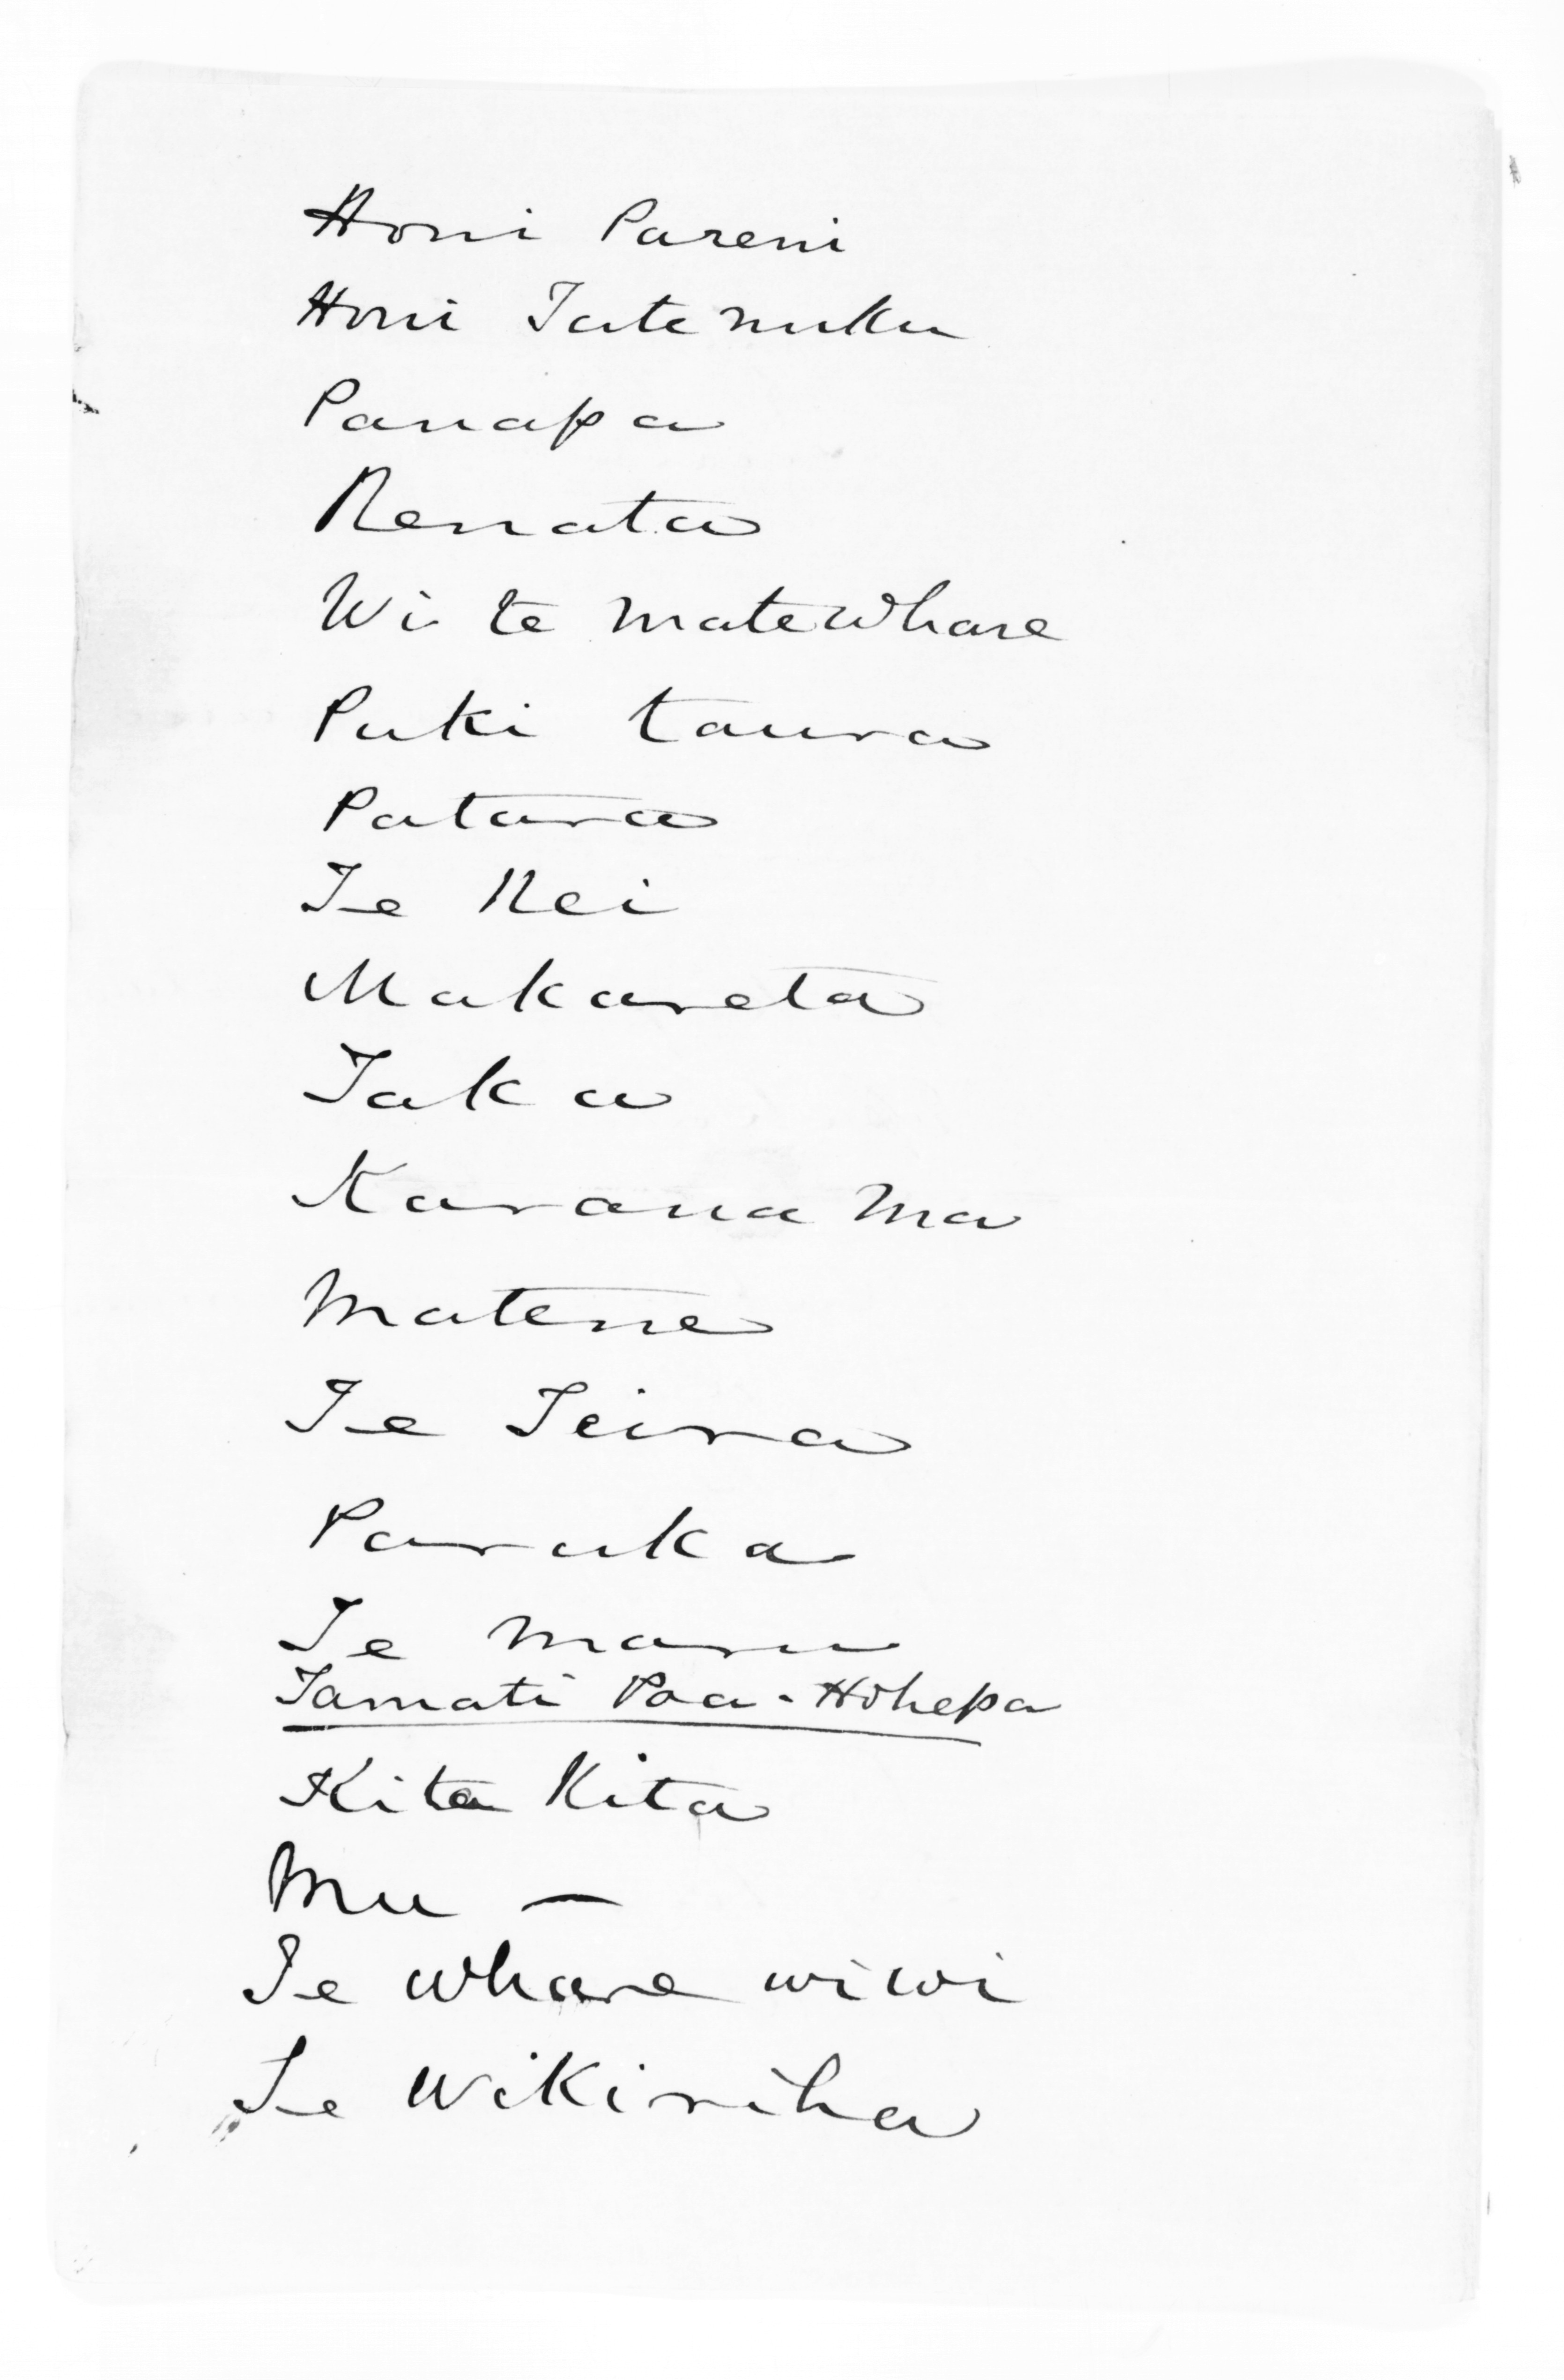 Honi Pareni
Honi Tatenuku
Panapa
Renata
Wi te Matewhare
Puki taura
Patara
Te Rei
Makareta
Taka
Karana Ma
Matene
Te Teira
Paruka
Te Maru
Tamati Paa - Hohepa
Kita Kita
Mu —
Te Whare wiwi
Te Wikiriha